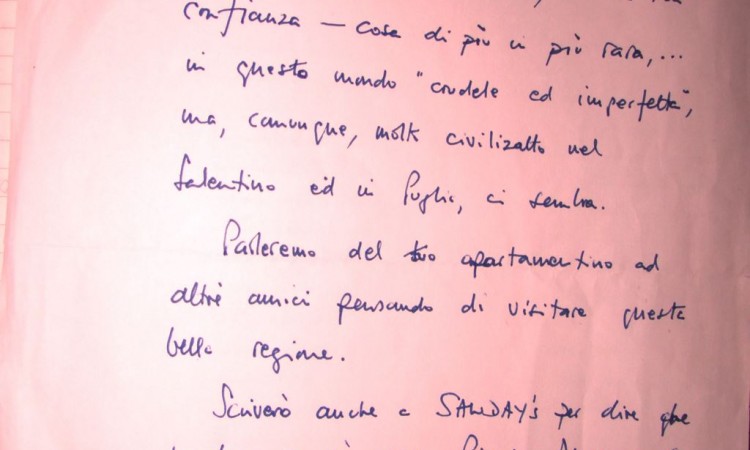 confianza — cosa di più in più rara,...
in questo mondo "crudele ed imperfetta",
ma, comunque, molto civilizatto nel
Salentino ed in Puglia, ci sembra.
Parleremo del tuo apartamentino ad
altri amici pensando di visitare questa
bella regione.
Scriverò anche a SAWDAY's per dire que